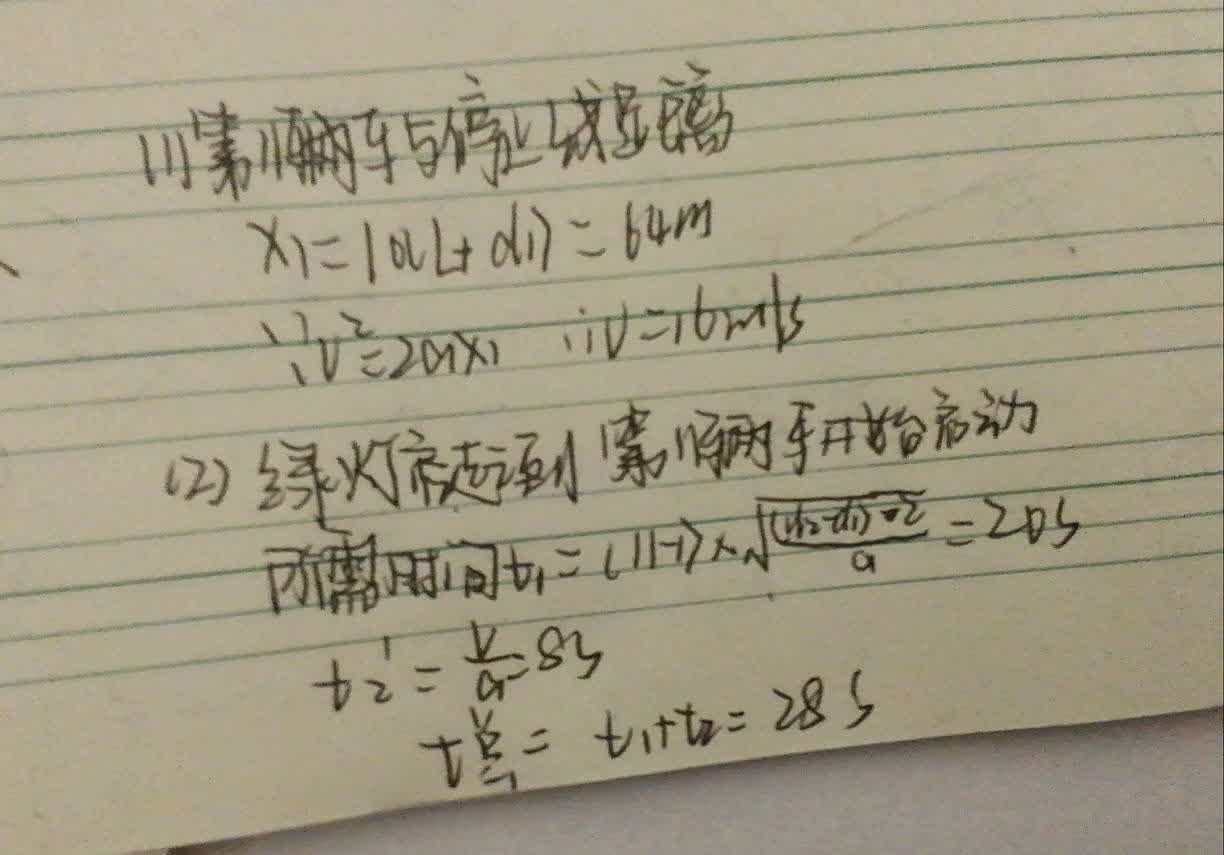 (1)第11辆车与停止线距离
x₁=10(L+d₁)=64m
∵v²=2ax₁ ∴v=16m/s
(2)绿灯亮起到第11辆车开始启动
所需时间t₁=(11-1)×√((d₂-d₁)×2/a)=20s
t₂=v/a=8s
t总=t₁+t₂=28s